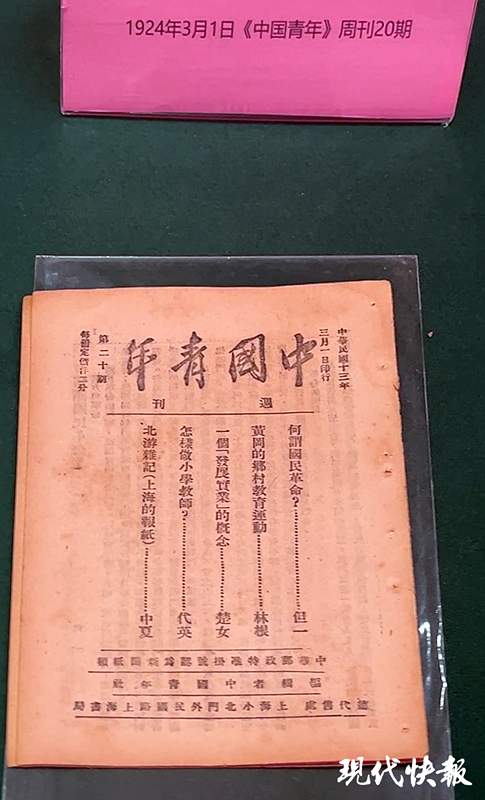 1924年3月1日《中国青年》周刊20期
中華民國十三年
三月一日印行
中國青年
週刊
第二十期
每冊定價洋三分
何謂國民革命?……但一
黃岡的鄉村教育運動……林根
一個「發展實業」的概念……楚女
怎樣做小學教師?……代英
北游雜記(上海的報紙)……中夏
中華郵政特准掛號認爲新聞紙類
編輯者中國青年社
總代售處 上海小北門外民國路上海書局
現代快報